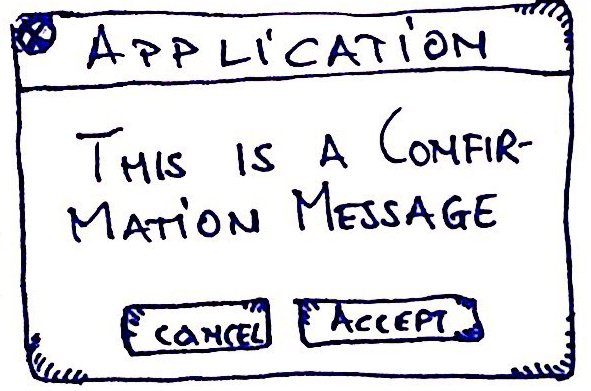 APPLICATION
THIS IS A CONFIR-
MATION MESSAGE
CANCEL
ACCEPT